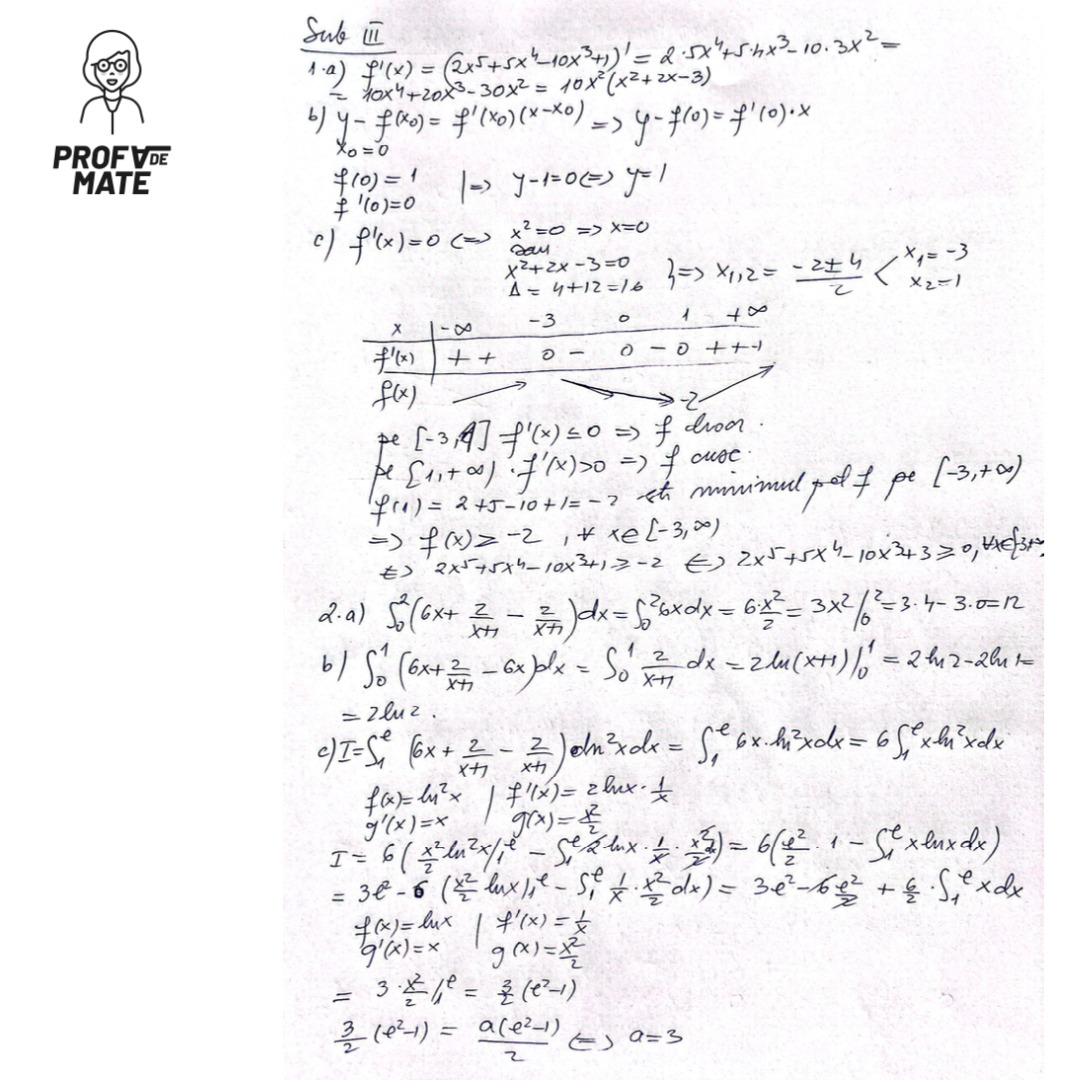 PROFA DE
MATE
Sub III
1.a) f'(x) = (2x⁵+5x⁴-10x³+1)' = 2·5x⁴+5·4x³-10·3x² =
= 10x⁴+20x³-30x² = 10x²(x²+2x-3)
b) y - f(x₀) = f'(x₀)(x-x₀) => y-f(0) = f'(0)·x
x₀=0
f(0) = 1 |=> y-1=0 <=> y=1
f'(0)=0
c) f'(x)=0 <=> x²=0 => x=0
sau
x²+2x-3=0 }=> x₁,₂ = (-2±4)/2 < x₁=-3
Δ= 4+12=16 x₂=1
x | -∞ -3 0 1 +∞
f'(x) | + + 0 - 0 - 0 + + +
f(x) -2
pe [-3,1] f'(x)≤0 => f descr.
pe [1,+∞) f'(x)>0 => f cresc.
f(1) = 2+5-10+1=-2 este minimul pt f pe [-3,+∞)
=> f(x)≥-2, ∀ x∈[-3,∞)
<=> 2x⁵+5x⁴-10x³+1≥-2 <=> 2x⁵+5x⁴-10x³+3≥0, ∀x∈[-3,+∞
2.a) ∫₀²(6x+ 2/(x+1) - 2/(x+1))dx = ∫₀²6xdx = 6·x²/2 = 3x²/₀² = 3·4-3·0=12
b) ∫₀¹(6x+ 2/(x+1) - 6x)dx = ∫₀¹ 2/(x+1) dx = 2ln(x+1)/₀¹ = 2ln2-2ln1=
= 2ln2.
c) I=∫₁ᵉ (6x+ 2/(x+1) - 2/(x+1))ln²xdx = ∫₁ᵉ 6x·ln²xdx = 6∫₁ᵉxln²xdx
f(x)=ln²x | f'(x)= 2lnx·1/x
g'(x)=x g(x)=x²/2
I= 6(x²/2 ln²x/₁ᵉ - ∫₁ᵉ2lnx·1/x·x²/2 dx) = 6(e²/2·1 - ∫₁ᵉxlnxdx)
= 3e²-6(x²/2 lnx/₁ᵉ - ∫₁ᵉ 1/x·x²/2 dx) = 3e²-6e²/2 + 6/2·∫₁ᵉxdx
f(x)=lnx | f'(x)=1/x
g'(x)=x g(x)=x²/2
= 3·x²/2/₁ᵉ = 3/2(e²-1)
3/2(e²-1) = a(e²-1)/2 <=> a=3